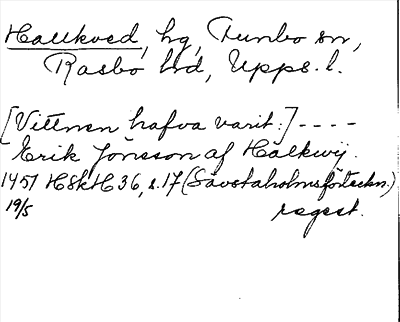 Haukved, hg, Tunbo sn,
Rasbo hd, Upps. l.
[Vittnen hafva varit:] ----
Erik Jönsson af Halkwij.
1451 HSkH 36, s. 17 (Sävstaholmsförteckn.)
19/5 regest.